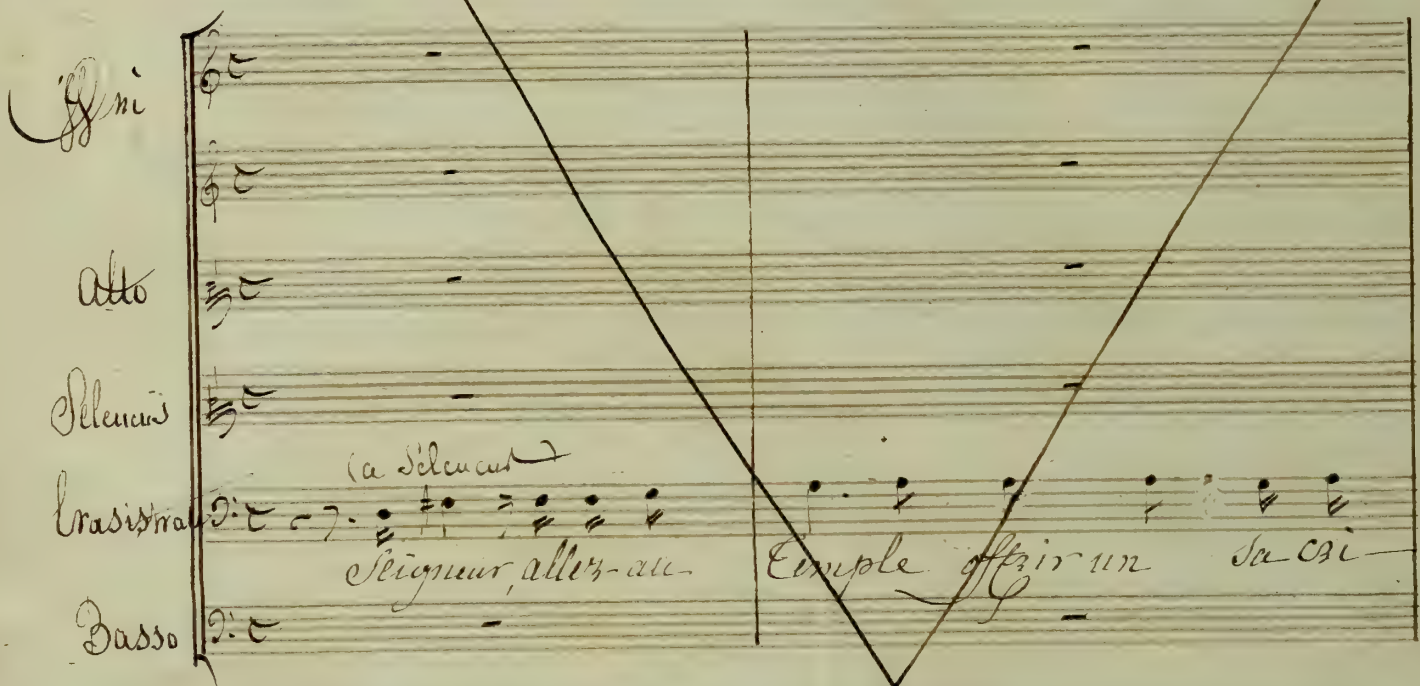 VVni
Alto
Séleucus
Erasistrate
(a Séleucus)
Seigneur, allez-au Temple offrir un sacri-
Basso